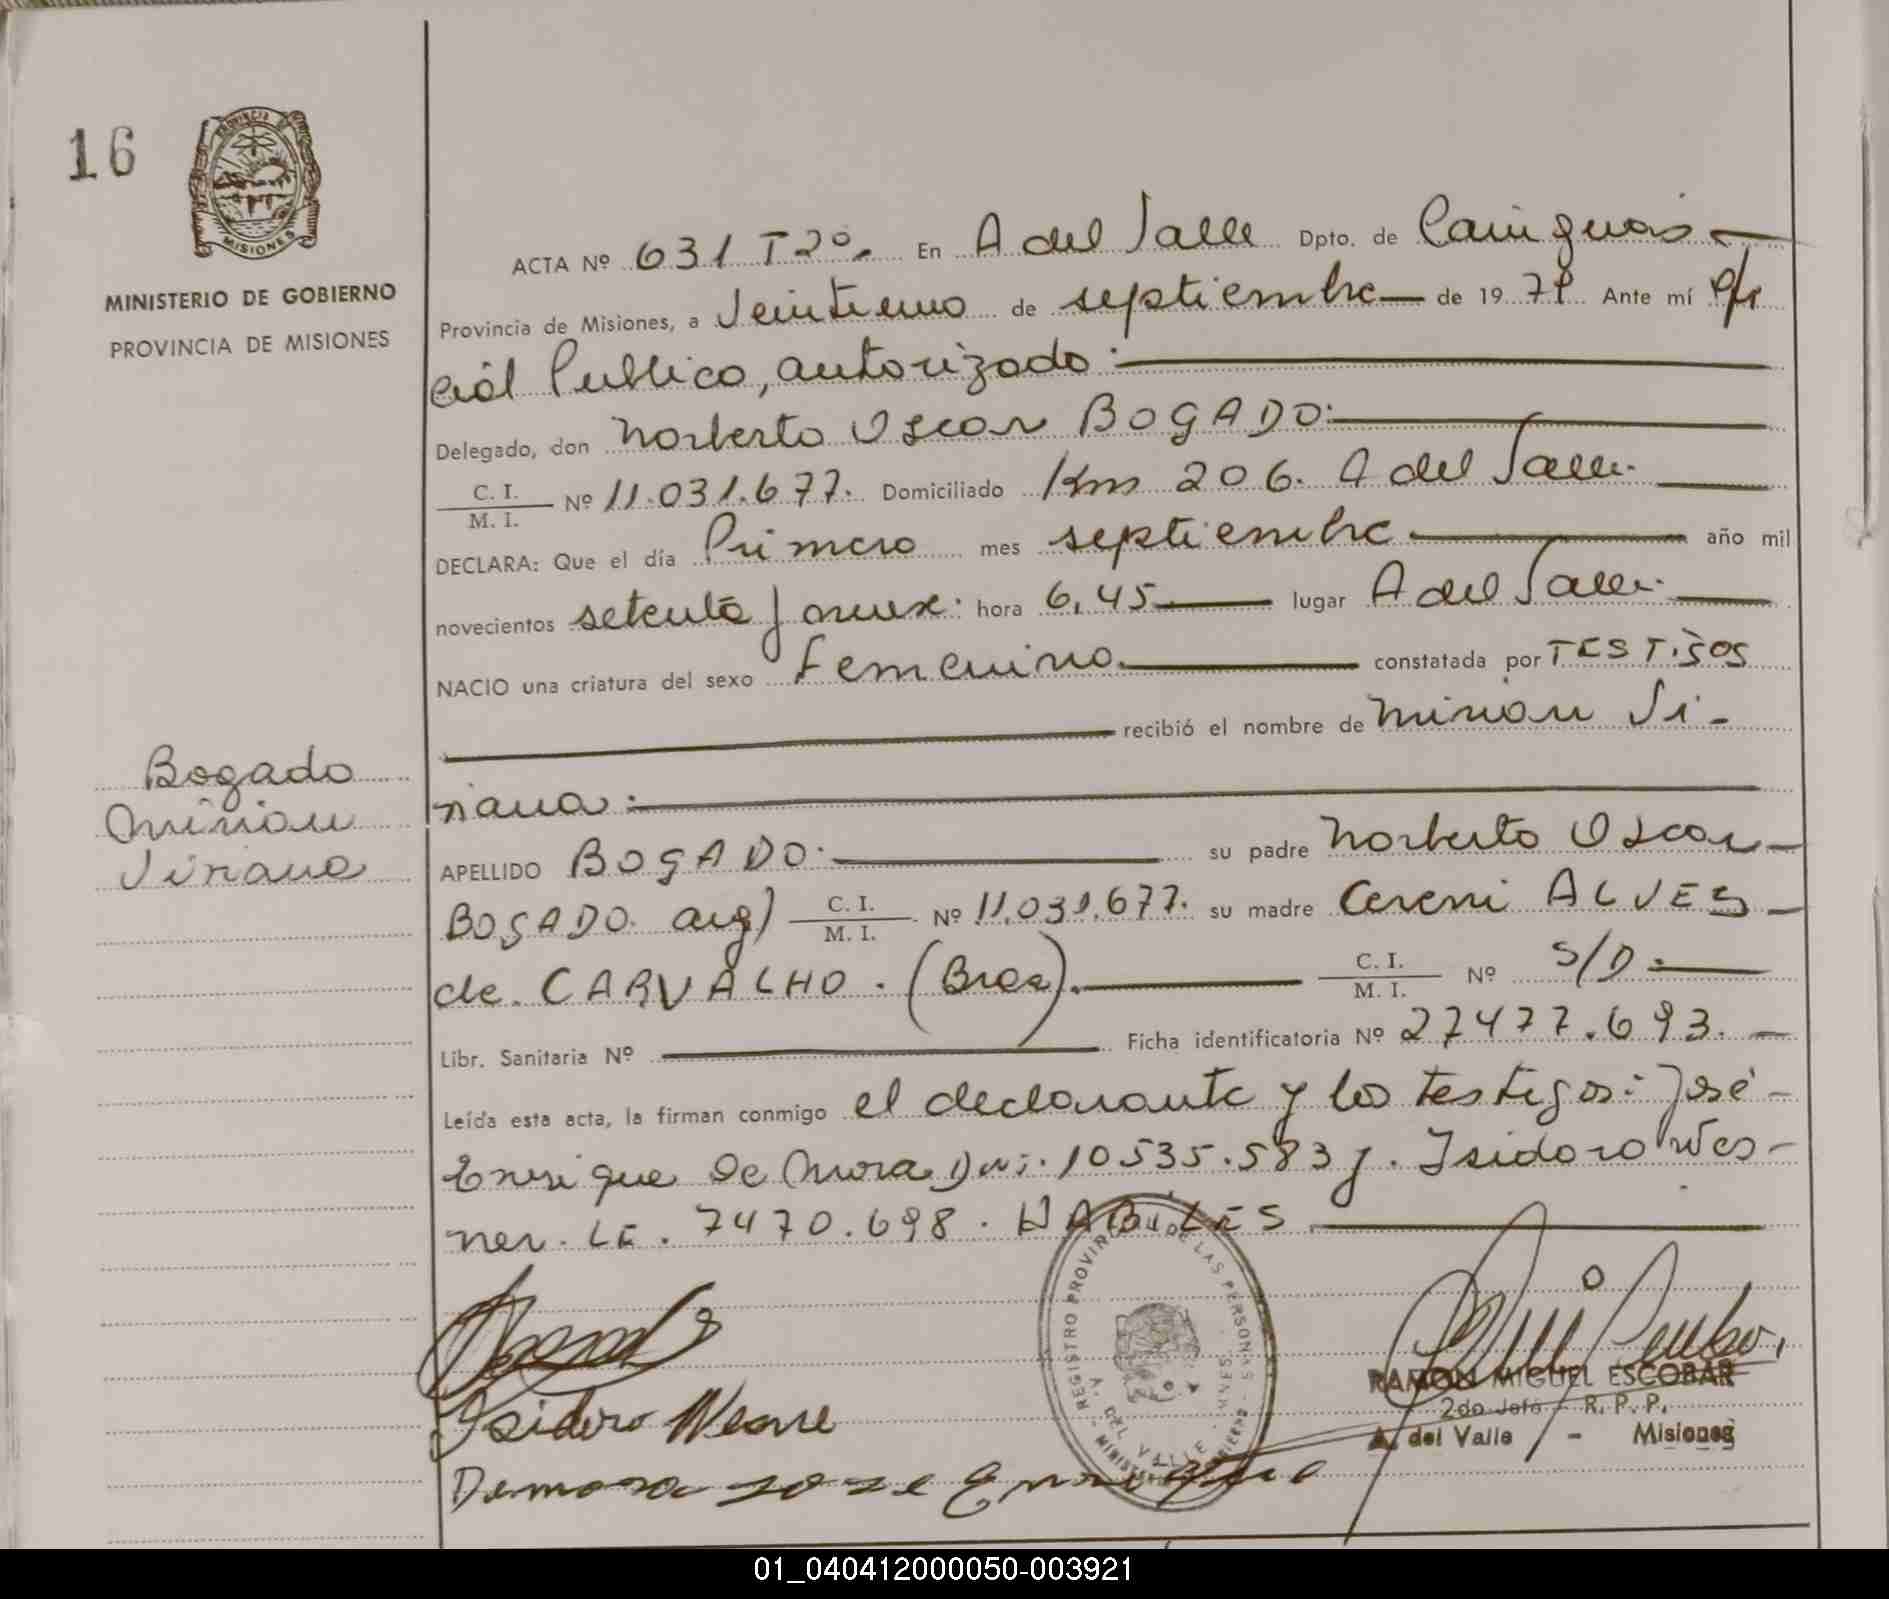 16
PROVINCIA DE
MISIONES
MINISTERIO DE GOBIERNO
PROVINCIA DE MISIONES
ACTA Nº 631 Tº2º. En A del Valle Dpto. de Cainguás
Provincia de Misiones, a Veintiuno de septiembre de 1979 Ante mí Ofi
cial Publico, autorizado:
Delegado, don Norberto Oscar BOGADO:
C. I.
M. I. Nº 11.031.677. Domiciliado Km 206. A del Valle.
DECLARA: Que el día Primero mes septiembre año mil
novecientos setenta y nueve: hora 6,45 lugar A del Valle.
NACIO una criatura del sexo Femenino. constatada por TESTIGOS
recibió el nombre de Mirian Vi-
Bogado
Mirian
Viviana
viana:
APELLIDO BOGADO. su padre Norberto Oscar
BOGADO. arg) C. I.
M. I. Nº 11.031.677. su madre Cereni ALVES
de CARVALHO. (Bras). C. I.
M. I. Nº S/D.
Libr. Sanitaria Nº Ficha identificatoria Nº 27477.693.
Leída esta acta, la firman conmigo el declarante y los testigos: José
Enrique De Mora Dni. 10535.583 y. Isidoro Wes-
ner. LE. 7470.698. HABILES
REGISTRO PROVINCIAL DE LAS PERSONAS
A. DEL VALLE
Isidoro
Demora Jose Enrique
RAMON MIGUEL ESCOBAR
2do Jefe - R. P. P.
A. del Valle - Misiones
01_040412000050-003921